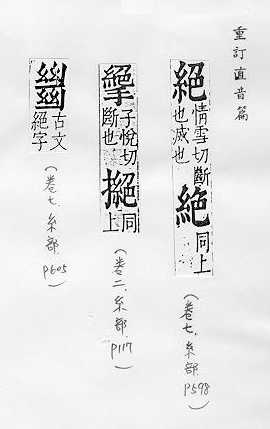 重訂直音篇
絕情雪切斷也滅也絶同上
（卷七.糸部.P598）
子悅切斷也撧同上
（卷二.糸部.P117）
古文絕字
（卷七.糸部.P605）